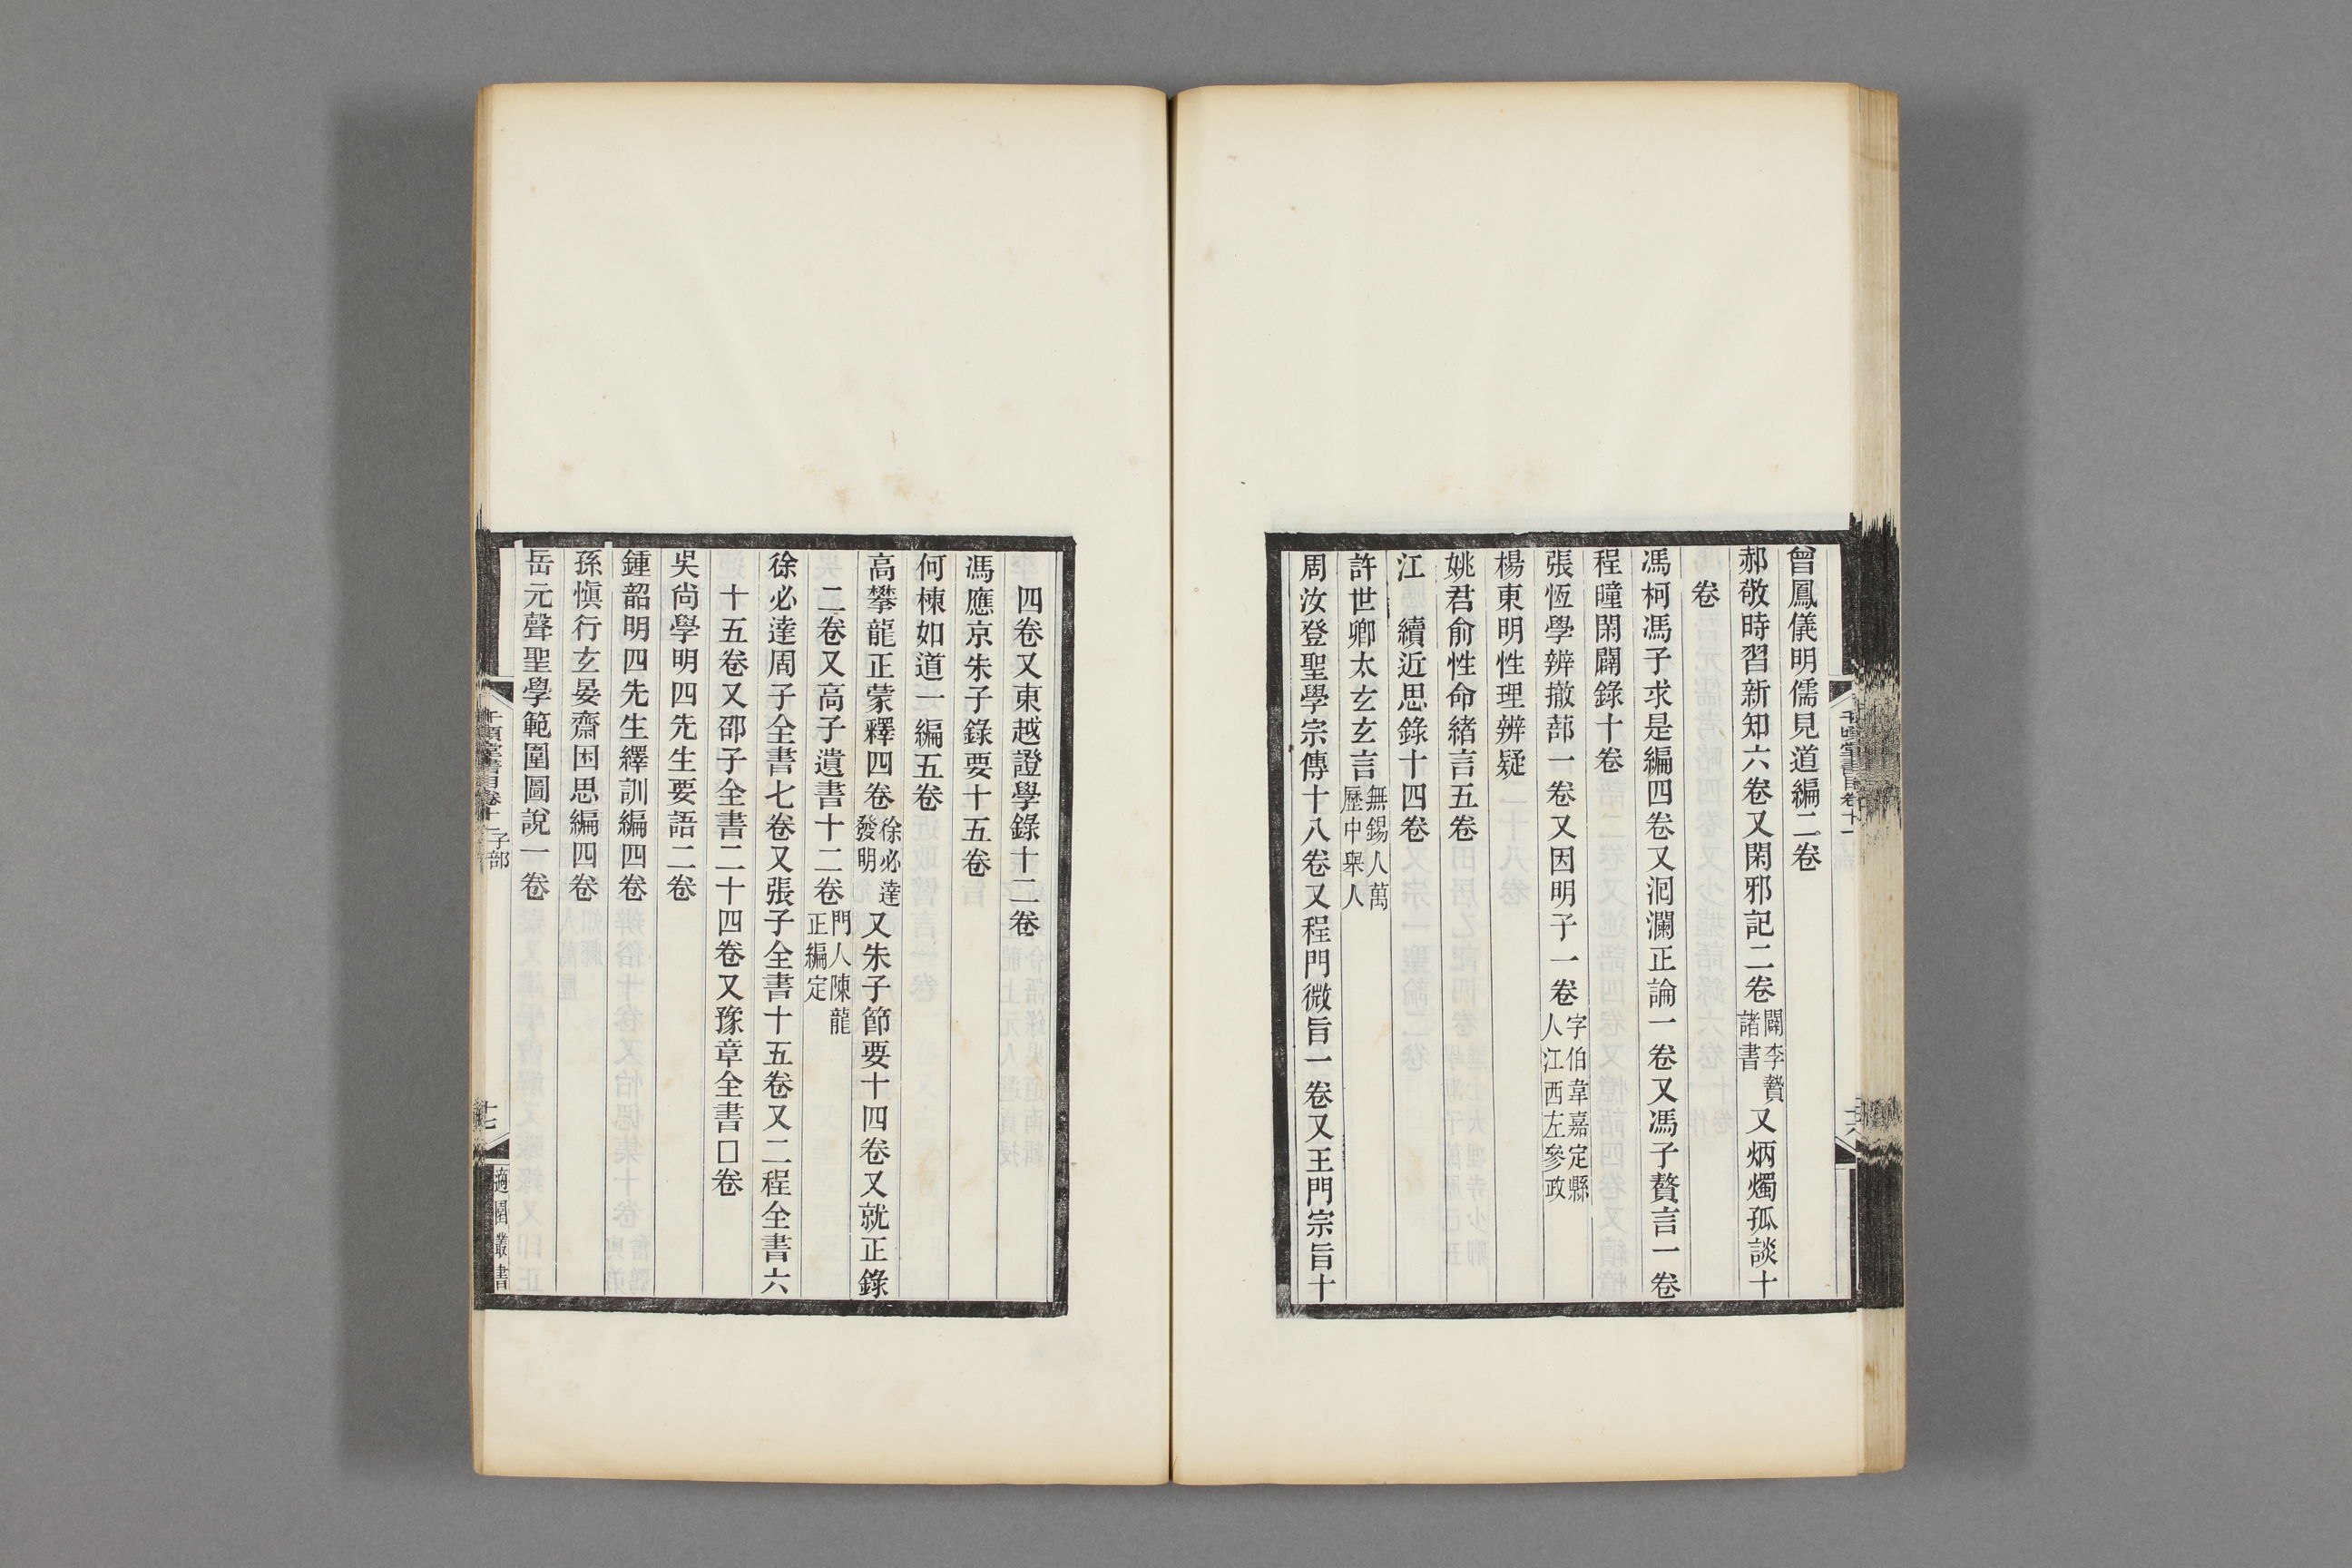 曾鳳儀明儒見道編二卷
郝敬時習新知六卷又閑邪記二卷闢李贄諸書又炳燭孤談十
卷
馮柯馮子求是編四卷又泂瀾正論一卷又馮子贅言一卷
程瞳閑闢錄十卷
張恆學辨撤蔀一卷又因明子一卷字伯韋嘉定縣人江西左參政
楊東明性理辨疑
姚君俞性命緒言五卷
江 續近思錄十四卷
許世卿太玄玄言無錫人萬歷中舉人
周汝登聖學宗傳十八卷又程門微旨一卷又王門宗旨十
四卷又東越證學錄十二卷
馮應京朱子錄要十五卷
何棟如道一編五卷
高攀龍正蒙釋四卷徐必達發明又朱子節要十四卷又就正錄
二卷又高子遺書十二卷門人陳龍正編定
徐必達周子全書七卷又張子全書十五卷又二程全書六
十五卷又邵子全書二十四卷又豫章全書□卷
吳尚學明四先生要語二卷
鍾韶明四先生繹訓編四卷
孫愼行玄晏齋困思編四卷
岳元聲聖學範圍圖說一卷
千頃堂書目卷十一 子部
十七
適園叢書